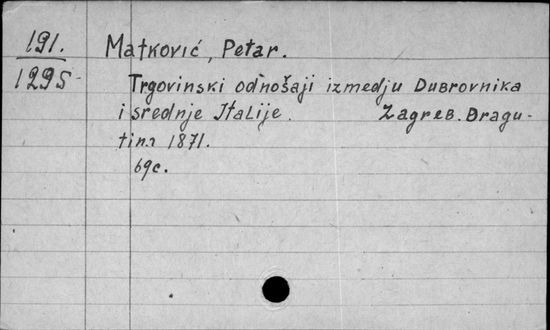 191. Matković, Petar.
1295 Trgovinski odnošaji izmedju Dubrovnika
i srednje Italije. Zagreb. Dragu-
tin. 1871.
69c.